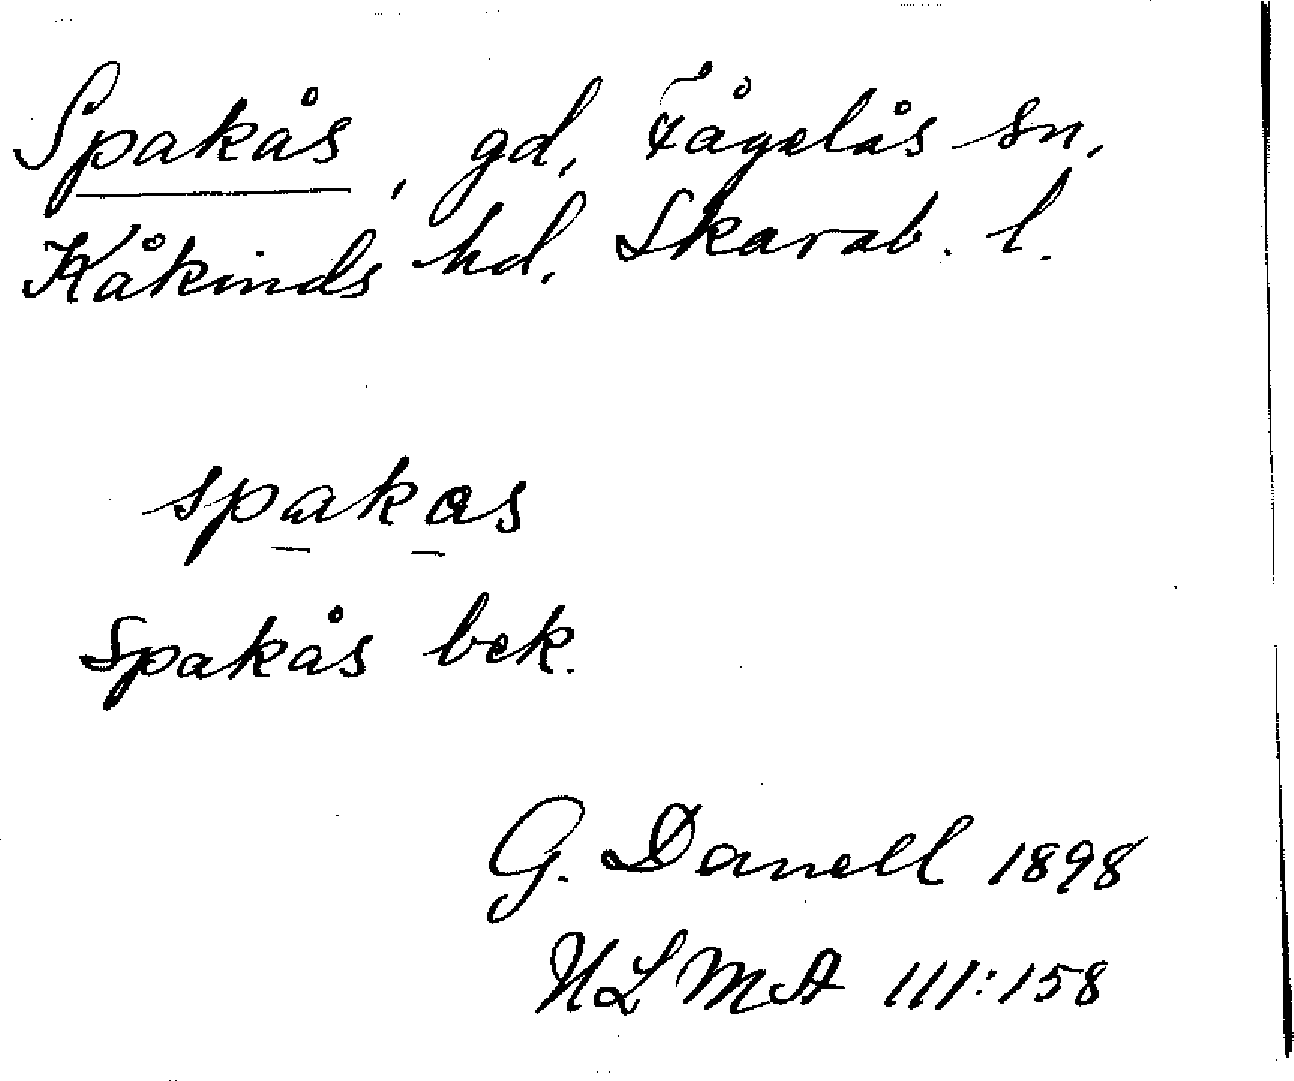 Spakås, gd, Fågelås sn,
Kåkinds hd. Skarab. l.
spakas
Spakås bek.
G. Danell 1898
ULMA 111:158